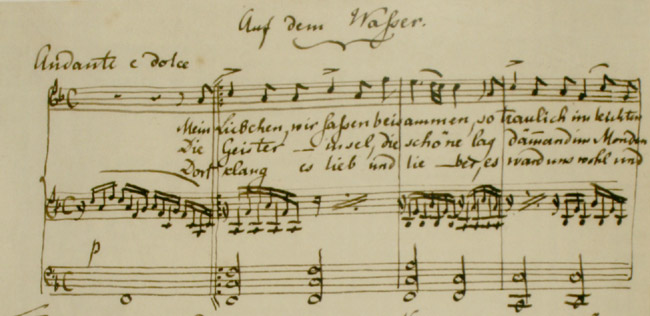 Auf dem Wasser.
Andante e dolce
Mein Liebchen, wir saßen beisammen, so traulich im leichten
Die Geister — insel, die schöne lag dämmernd im Monden
Dort klang es lieb und lie — ber, es ward uns wohl und
p